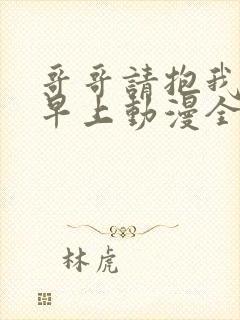 哥哥請抱我
早上動漫全
林虎